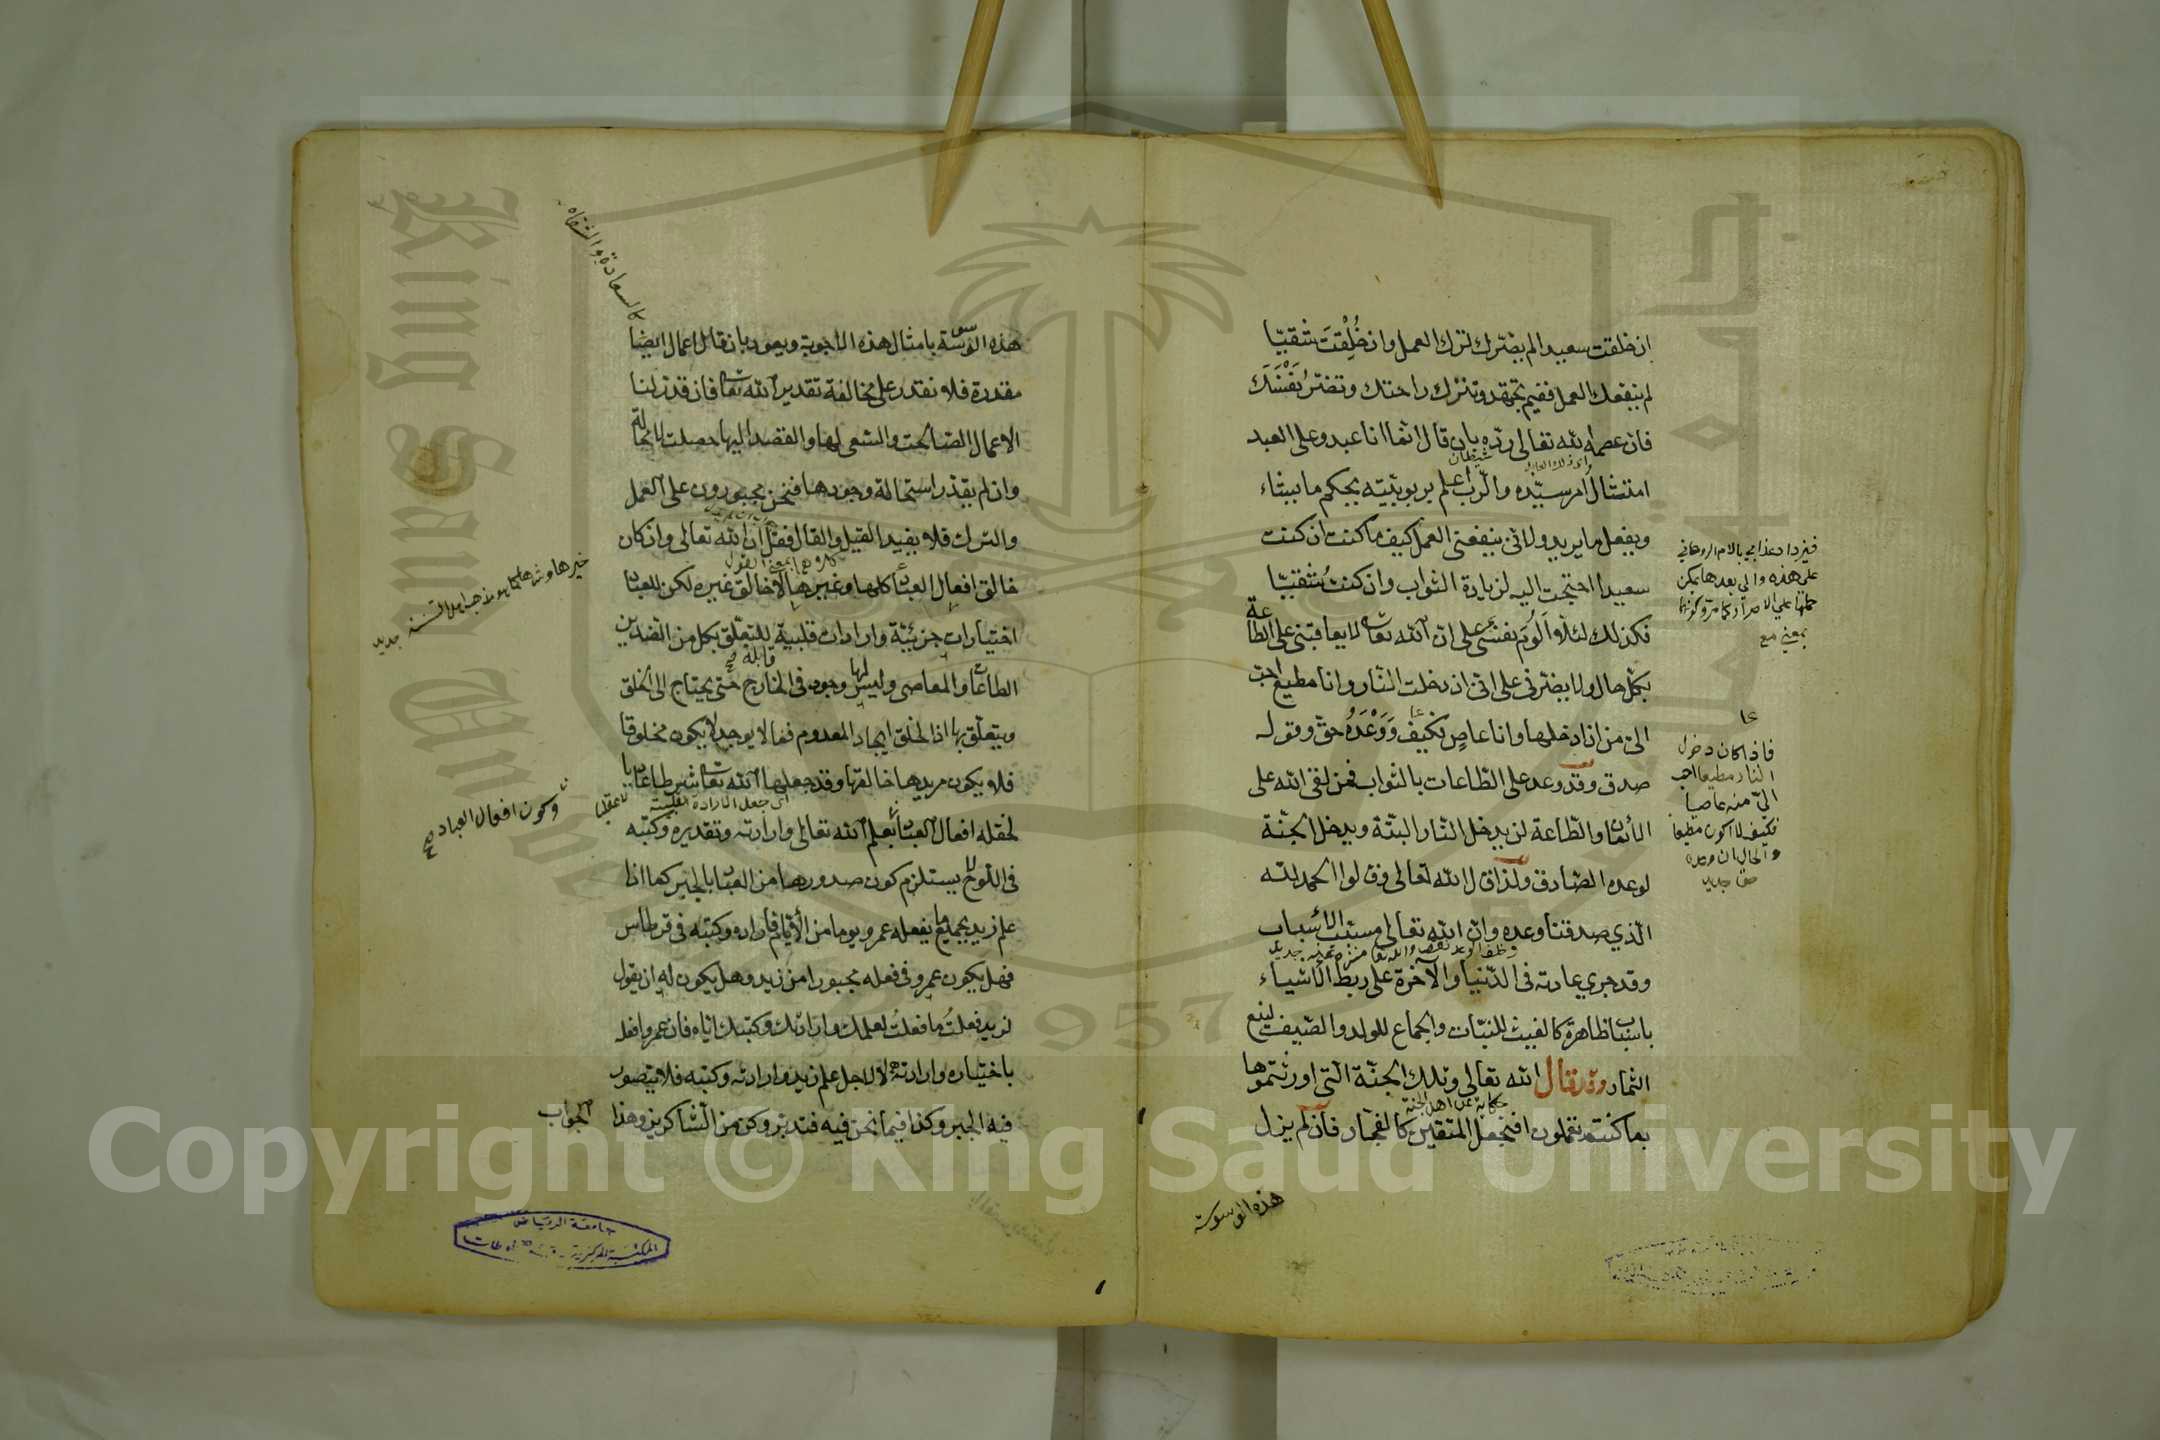 ان خلقت سعيدا لم يضرك ترك العمل وان خُلِقتَ شقيّا
لم ينفعك العمل ففيم تجتهد وتترك راحتك وتضرّ نَفْسَكَ
فان عصمه الله تعالى ردّه بان قال انما انا عبد وعلى العبد
امتثال امر سيّده والرّب اعلم بربوبيّته يحكم ما يشاء
ويفعل ما يريد ولانّى ينفعنى العمل كيف ما كنت ان كنت
سعيدا احتجت اليه لزيادة الثواب وان كنتُ شقيّا
فكذلك لئلّا اَلُومَ نفسى على انّ الله تعالى لا يعاقبنى على الطاعة
بكلّ حال ولا يضرنى على انّى ان دخلت النّار وانا مطيع احبّ
الىّ من ان ادخلها وانا عاصٍ فكيف وَوَعْدُهُ حقّ وقوله
صدق وقد وعد على الطّاعات بالثواب فمن لقى الله على
الأيمان والطّاعة لن يدخل النّار البتّة ويدخل الجنّة
لوعده الصّادق ولذا قال الله تعالى وقالوا الحمد لله
الّذي صدقنا وعده وانّ الله تعالى مسبّب الأسباب
وقد جري عادته فى الدّنيا والآخرة على ربط الأشياء
باسباب ظاهرة كالغيث للنبّات والجماع للولد والصّيف لينع
الثمار وقد قال الله تعالى وتلك الجنّة الّتى اورثتموها
حكاية عن اهل الجنّة
بما كنتم تعملون افنجعل المتقين كالفجّار فان لم يزل
هذه الوسوسة
فيزداد عذابي بالالم الروحاني
علي هذه والي بعدها يمكن
بمعني مع
فاذا كان دخول
النار مطيعا احب
اليّ منه عاصيا
فكيف لا اكون مطيعا
والحال ان وعده
حق جديد
هذه الوسوسة بامثال هذه الاجوبة ويعود بان قال اعمال ايضا
مقدرة فلا نقدر على مخالفة تقدير الله تعالى فان قدّر لنا
الاعمال الصّالحات والسّعى لها والقصد اليها حصلت لا محالة
وان لم يقدّر استحالة وجودها فنحن مجبورون على العمل
والترك فلا يفيد القيل والقال فقل ان الله تعالى وان كان
خالق افعال العباد كلها وغيرها لا خالق غيره لكن للعباد
اختيارات جزئيّة وارادات قلبية للتعلّق بكل من الضدين
قابلة صح
الطاعات والمعاصى وليس لها وجود فى الخارج حتّى يحتاج الى الخلق
ويتعلّق بها اذ الخلق ايجاد المعدوم فما لا يوجد لا يكون مخلوقا
فلا يكون مريدها خالقها وقد جعلها الله تعالى شرطا عاديا
اى جعل الارادة القلبية
لا عقليا
لخلقه افعال العباد بعلم الله تعالى وارادته وتقديره وكتبه
فى اللّوح لا يستلزم كون صدورها من العباد بالجبر كما اذا
علم زيد بجميع ما يفعله عمرو يوما من الأيّام فاراده وكتبه فى قرطاس
فهل يكون عمرو فى فعله مجبورا من زيد وهل يكون له ان يقول
لزيد فعلتُ ما فعلتُ لعلمك وارادتك وكتبك ايّاه فان عمروا فعله
باختياره وارادته لا لاجل علم زيد وارادته وكتبه فلا يتصور
فيه الجبر وكذا فيما نحن فيه فتدبّر وكن من الشّاكرين وهذا الجواب
كالسعادة والشقاوة
خيرها وشرها كما هو مذهب اهل السنة جديد
وكون افعال العباد صح
جامعة الرياض
المكتبة المركزية - قسم المخطوطات
King Saud University
1957
Copyright © King Saud University